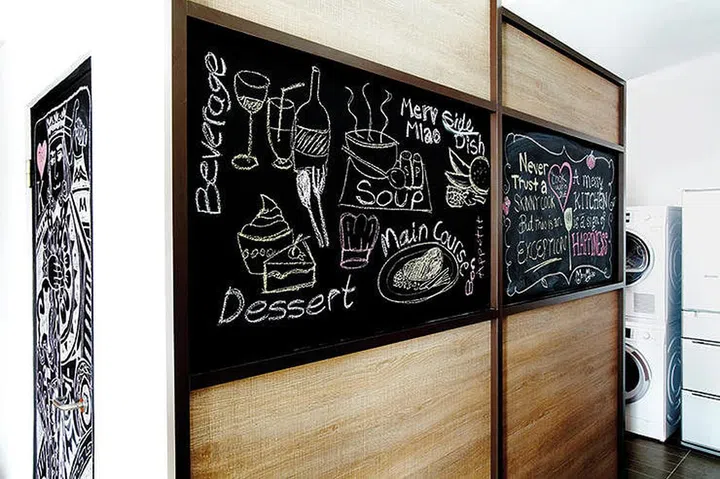 Beverage
Merv
Mlao
Side
Dish
Soup
Main Course
Bon
Appetit
Dessert
Never
Trust a
SKINNY COOK
But this is an
EXCEPTION
A merry
KITCHEN
is a sign
of
HAPPINESS